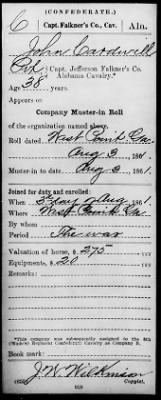 (CONFEDERATE.)
6 Capt. Falkner's Co., Cav. Ala.
John Cardwill
Pvt, Capt. Jefferson Falkner's Co.
Alabama Cavalry.*
Age 38 years.
Appears on
Company Muster-in Roll
of the organization named above,
Roll dated West Point Ga.
Aug 3, 1861
Muster-in to date Aug 3, 1861
Joined for duty and enrolled:
When 3d day of Aug, 1861.
Where West Point Ga.
By whom
Period The war
Valuation of horse, $ 275
Equipments, $ 20
Remarks:
*This company was subsequently assigned to the 8th
Confederate Cavalry as Company B.
Book mark:
J. W. Wilkinson
Copyist.